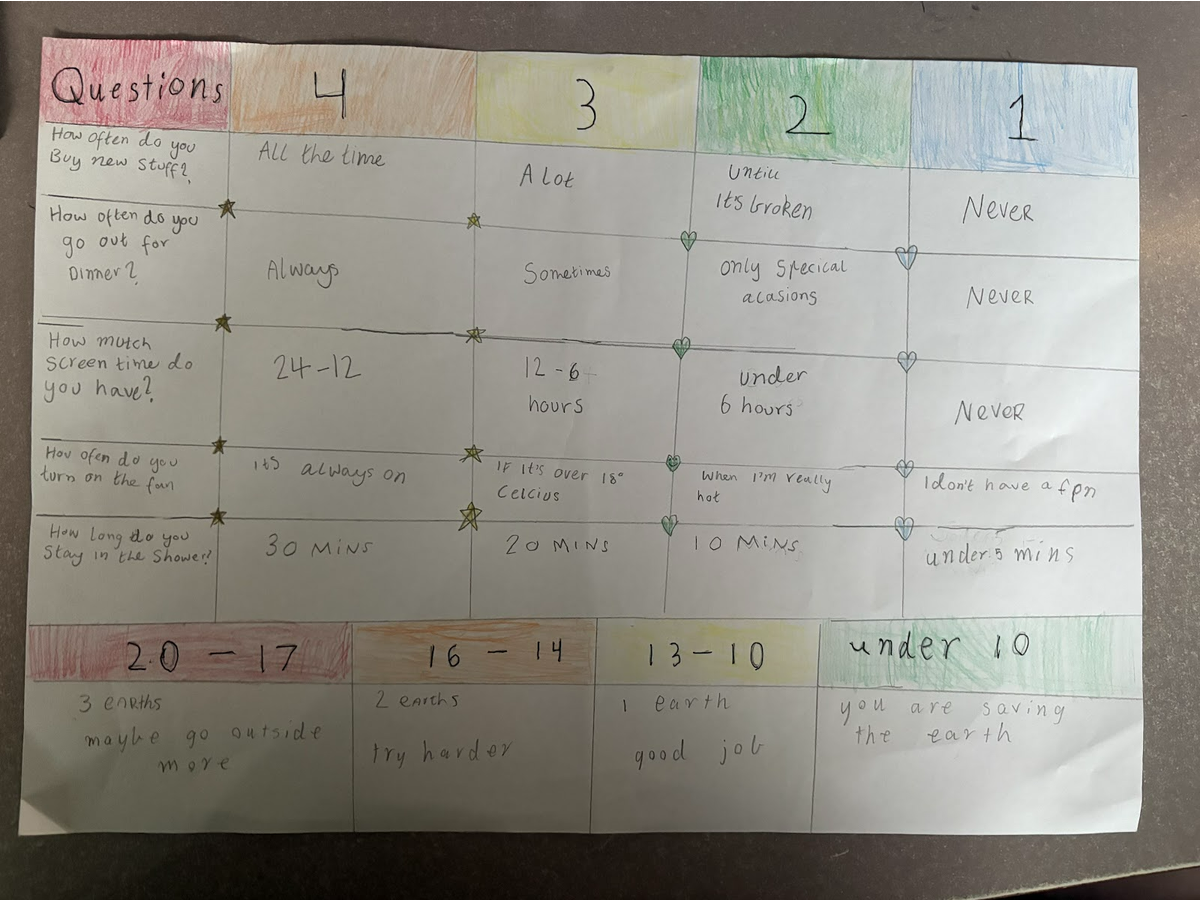 Questions 4 3 2 1
How often do you
Buy new stuff?
All the time
A lot
Untill
It's broken
Never
How often do you
go out for
Dinner?
Always
Sometimes
only Specical
acasions
Never
How mutch
screen time do
you have?
24-12
12-6
hours
under
6 hours
Never
How ofen do you
turn on the fan
it's always on
IF It's over 18°
Celcius
When I'm really
hot
I don't have a fan
How long do you
Stay in the Shower?
30 MINS
20 MINS
10 MiNS
under 5 mins
20 - 17
16 - 14
13-10
under 10
3 eaRths
maybe go outside
more
2 earths
try harder
1 earth
good job
you are saving
the earth